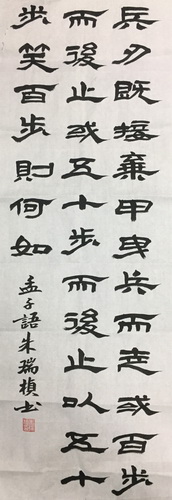 兵刃既接棄甲曳兵而走或百步
而後止或五十步而後止以五十
步笑百步則何如
孟子語朱瑞楨書